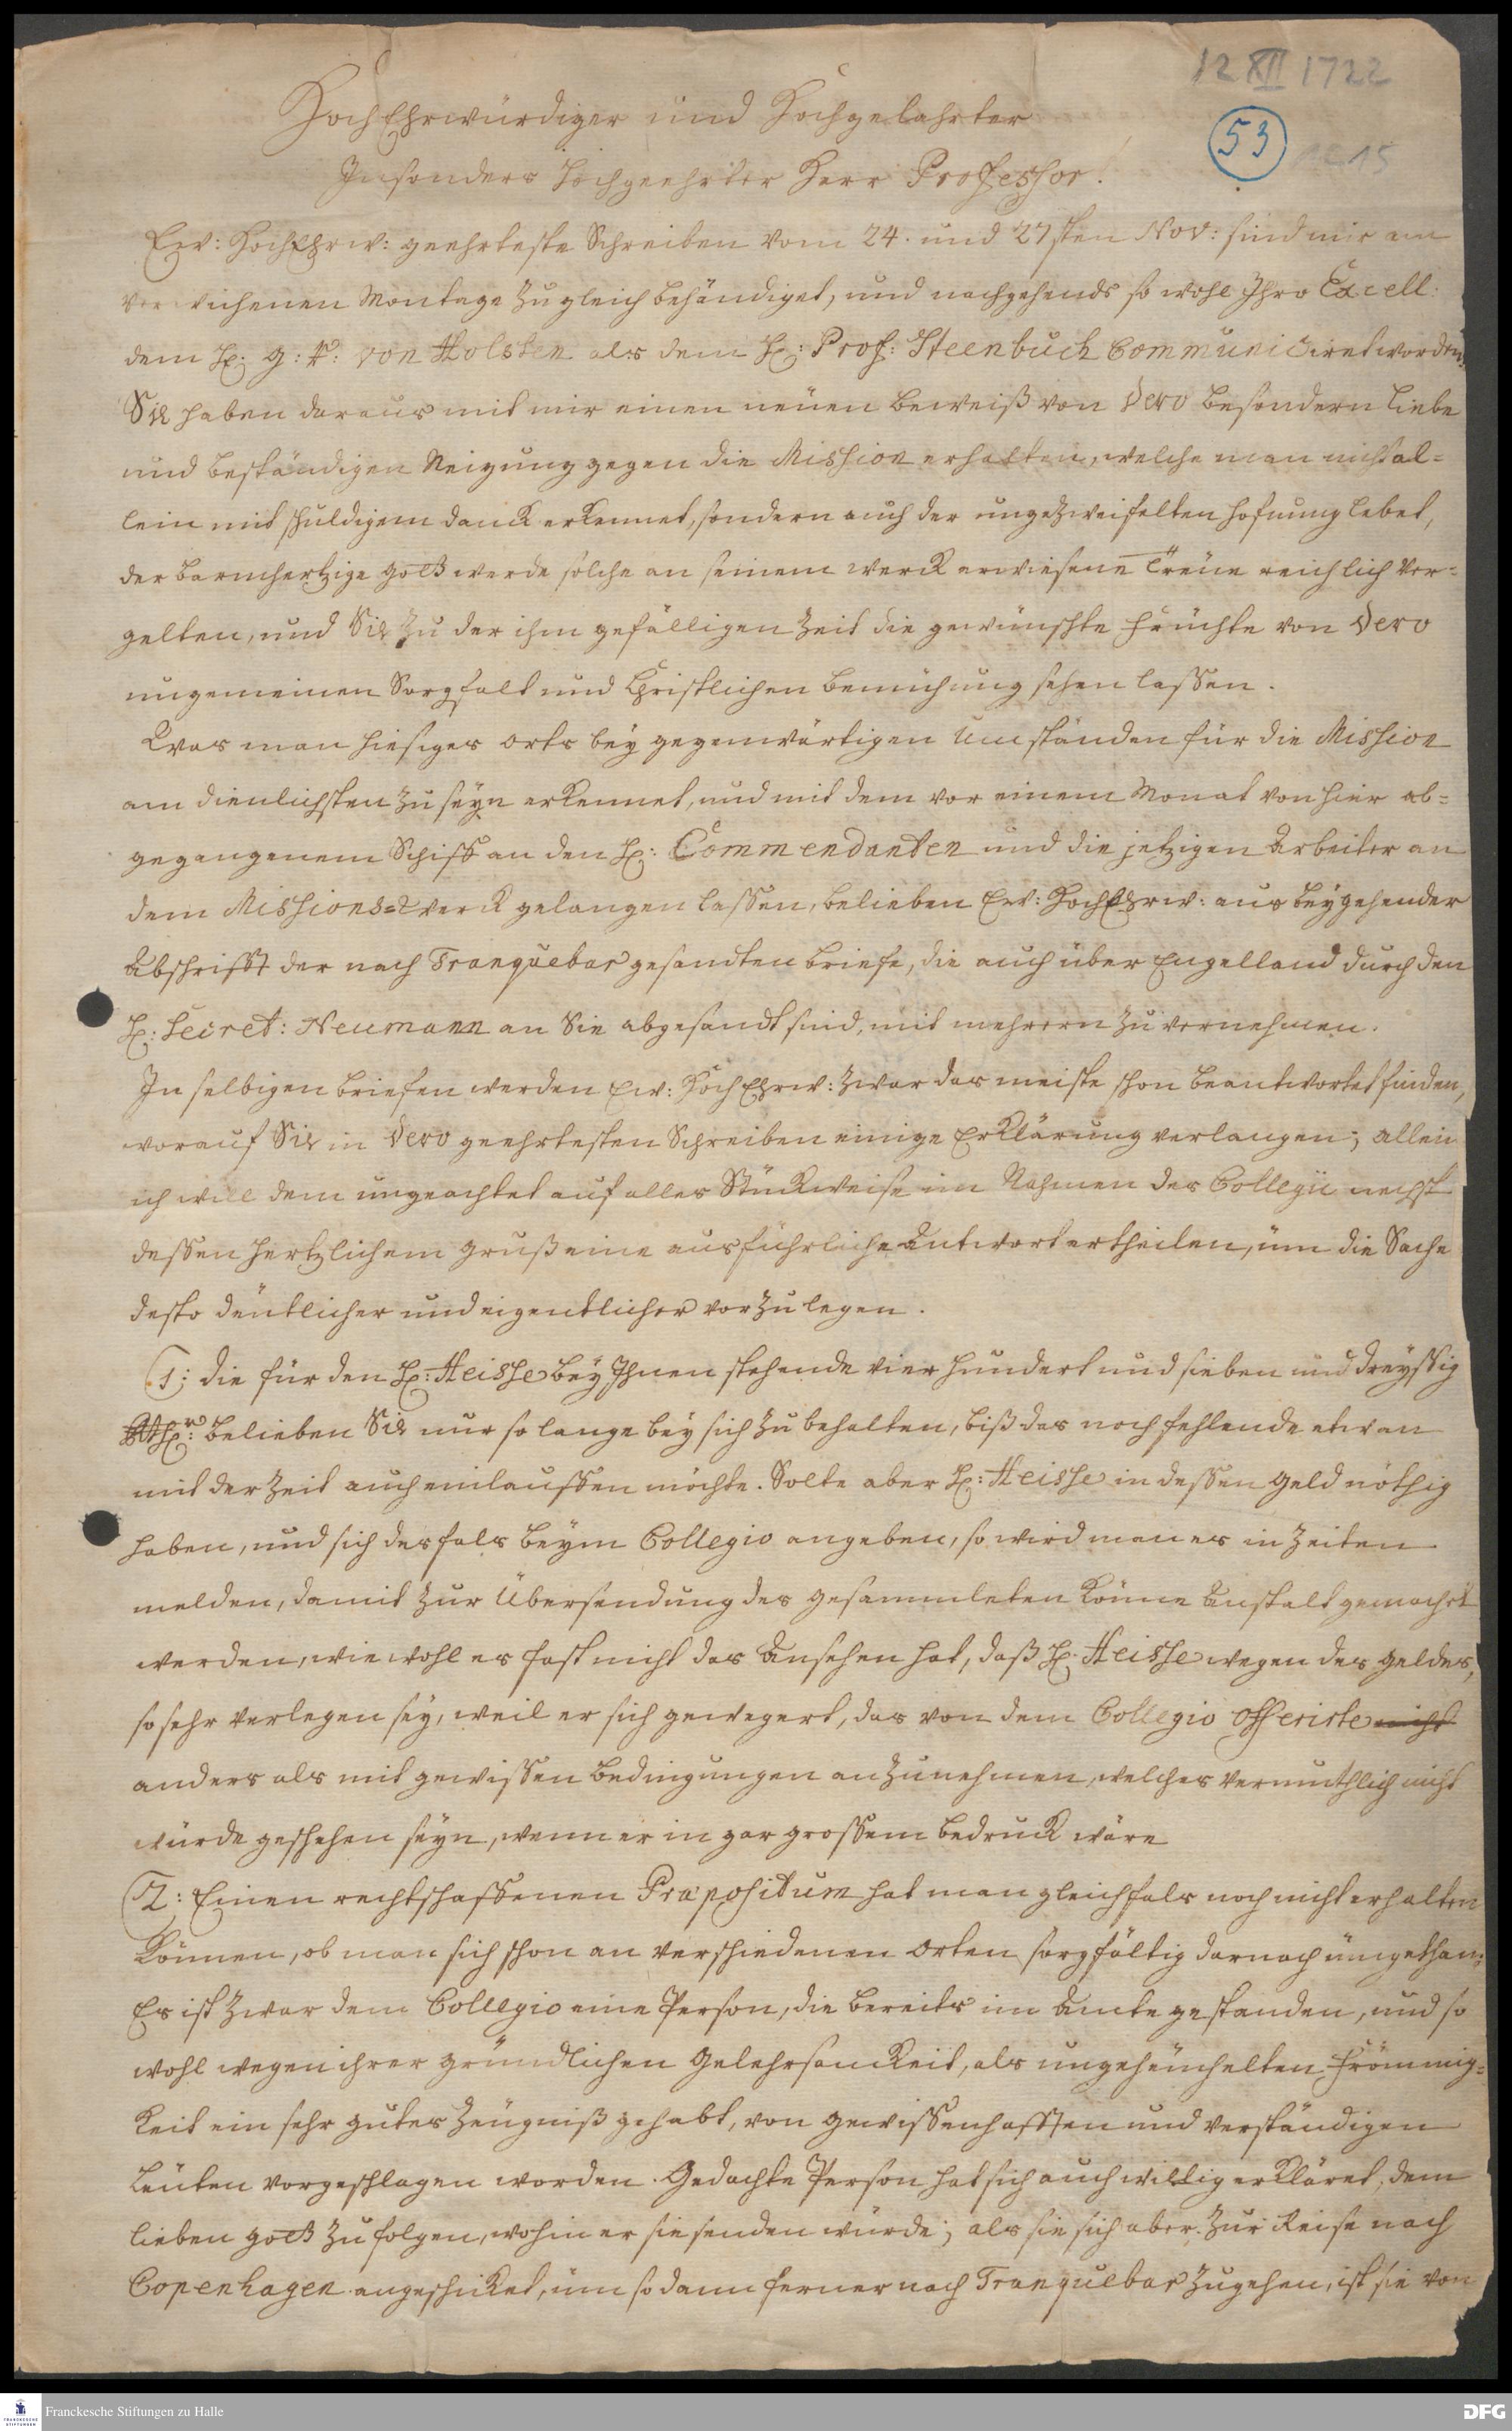 12 XII 1722
53
1 C 15
HochEhrwürdiger und Hochgelahrter
Insonders Hochgeehrter Herr Professor!
Ew: HochEhrw: geehrteste Schreiben vom 24. und 27sten Nov: sind mir am
verwichenen Montage zugleich behändiget, und nachgehends so wohl Ihro Excell:
dem H: g: r: von Holsten als dem H: Prof: Steenbuch Communiciret worden.
Sie haben daraus mit mir einen neüen beweiß von Dero besondern Liebe
und beständigen Neigung gegen die Mission erhalten, welche man nicht al-
lein mit schuldigem danck erkennet, sondern auch der ungezweifelten hofnung lebet,
der barmhertzige gott werde solche an seinem werck erwiesene Treüe reichlich ver-
gelten, und Sie zu der ihm gefälligen Zeit die gewünschte früchte von Dero
ungemeinen Sorgfalt und Christlichen bemühung sehen lassen.
Was man hiesiges orts bey gegenwärtigen Umständen für die Mission
am dienlichsten zu seyn erkennet, und mit dem vor einem Monat von hier ab-
gegangenem Schiff an den H: Commendanten und die jetzigen Arbeiter an
dem Missions-Werck gelangen lassen, belieben Ew: HochEhrw: aus beygehender
Abschrifft der nach Tranquebar gesandten briefe, die auch über Engelland durch den
H: Secret: Neumann an Sie abgesandt sind, mit mehrern zu vernehmen.
In selbigen briefen werden Ew: HochEhrw: zwar das meiste schon beantwortet finden,
worauf Sie in Dero geehrtesten Schreiben einige Erklärung verlangen; allein
ich will dem ungeachtet auf alles Stückweise im Nahmen des Collegii nechst
dessen hertzlichem gruß eine ausführliche Antwort ertheilen, üm die Sache
desto deütlicher und eigendtlicher vorzulegen.
1: die für den H: Heisse bey Ihnen stehende vier hundert und sieben und dreyssig
belieben Sie nur so lange bey sich zu behalten, biß das noch fehlende etwan
mit der Zeit auch einlauffen möchte. Solte aber H: Heisse in dessen geld nöthig
haben, und sich desfals beym Collegio angeben, so wird man es in Zeiten
melden, damit zur Übersendung des gesammleten könne Anstalt gemacht
werden, wie wohl es fast nicht das Ansehen hat, daß H: Heisse wegen des geldes,
so sehr verlegen sey, weil er sich gewegert, das von dem Collegio offerirte nicht
anders als mit gewissen bedingungen anzunehmen, welches vermuthlich nicht
würde geschehen seyn, wenn er in gar grossem bedruck wäre
2: Einen rechtschaffenen Præpositum hat man gleichfals noch nicht erhalten
können, ob man sich schon an verschiedenen orten sorgfältig darnach ümgethan:
Es ist zwar dem Collegio eine Person, die bereits im Amte gestanden, und so
wohl wegen ihrer gründlichen gelehrsamkeit, als ungeheüchelten frömmig-
keit ein sehr gutes Zeügniß gehabt, von gewissenhafften und verständigen
Leüten vorgeschlagen worden. Gedachte Person hat sich auch willig erkläret, dem
lieben gott zu folgen, wohin er sie senden würde; als sie sich aber zur Reise nach
Copenhagen angeschicket, üm so dann ferner nach Tranquebar zugehen, ist sie von
Franckesche Stiftungen zu Halle
DFG